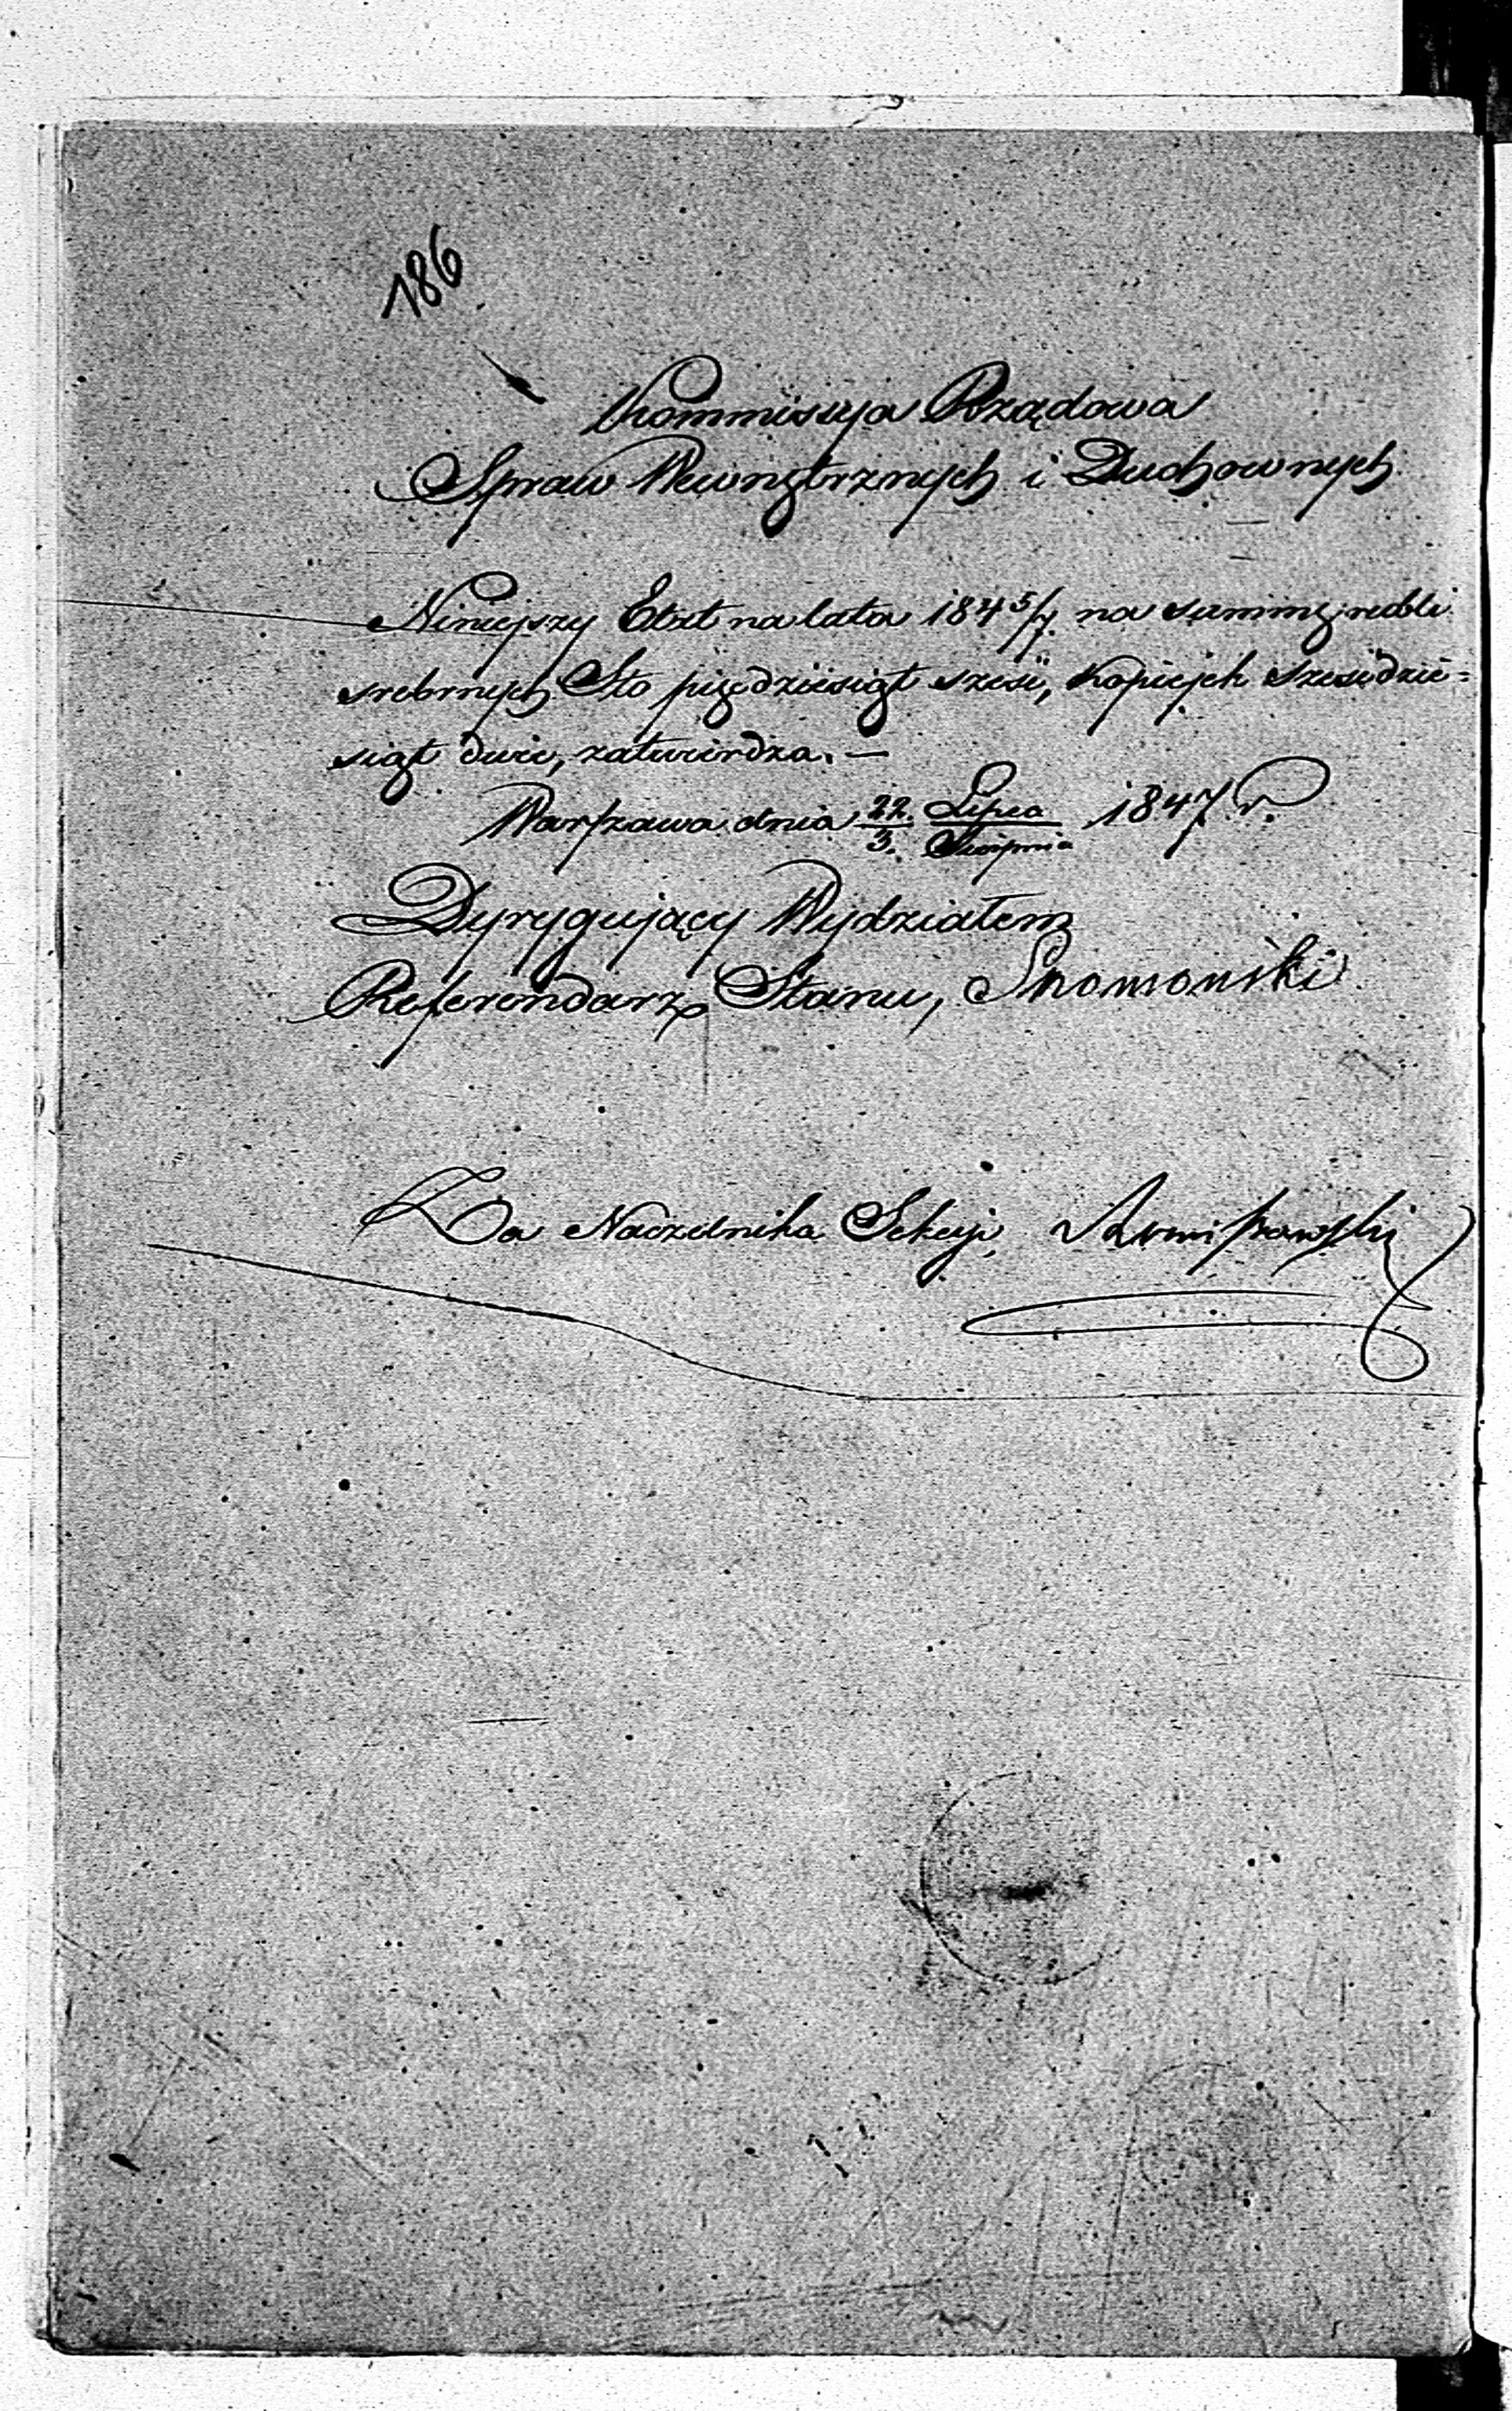 186
Kommissyja Rządowa
Spraw Wewnętrznych i Duchownych
Niniejszy Etat na lata 184 5/7 na summę rubli
srebrnych Sto pięćdziesiąt sześć, kopiejek sześćdzie=
siąt dwie, zatwierdza. —
Warszawa dnia 22. Lipca 1847 r.
3. Sierpnia
Dyrygujący Wydziałem
Referendarz Stanu,
Za Naczelnika Sekcyi,